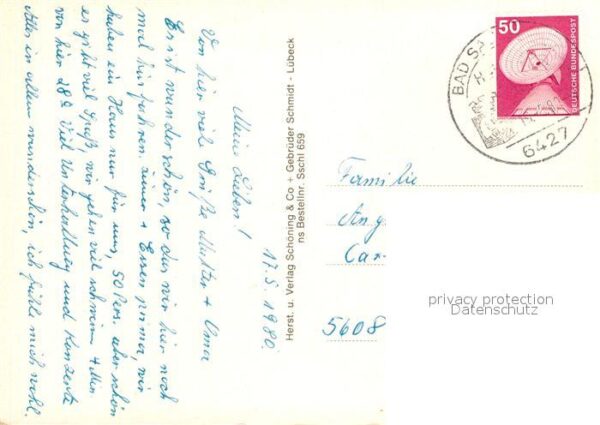 17.5.1980.
Meine Lieben!
Von hier viele Grüße Mutter + Oma
Es ist wunderschön, so das wir hier noch
mal hin fahren. Zimmer + Essen prima, wir
haben ein Haus nur für uns, 50 Pers. aber schön
es gibt viel Spaß, wir gehen viel schwimm 4 Min
von hier 28° Viel Unterhaltung und Konzerte
Alles in allem wunderschön, ich fühle mich wohl.
Herst. u. Verlag Schöning & Co + Gebrüder Schmidt - Lübeck
ns Bestellnr. Sschl 659
50
DEUTSCHE BUNDESPOST
BAD S
6427
Familie
Ang
Car
5608
privacy protection
Datenschutz